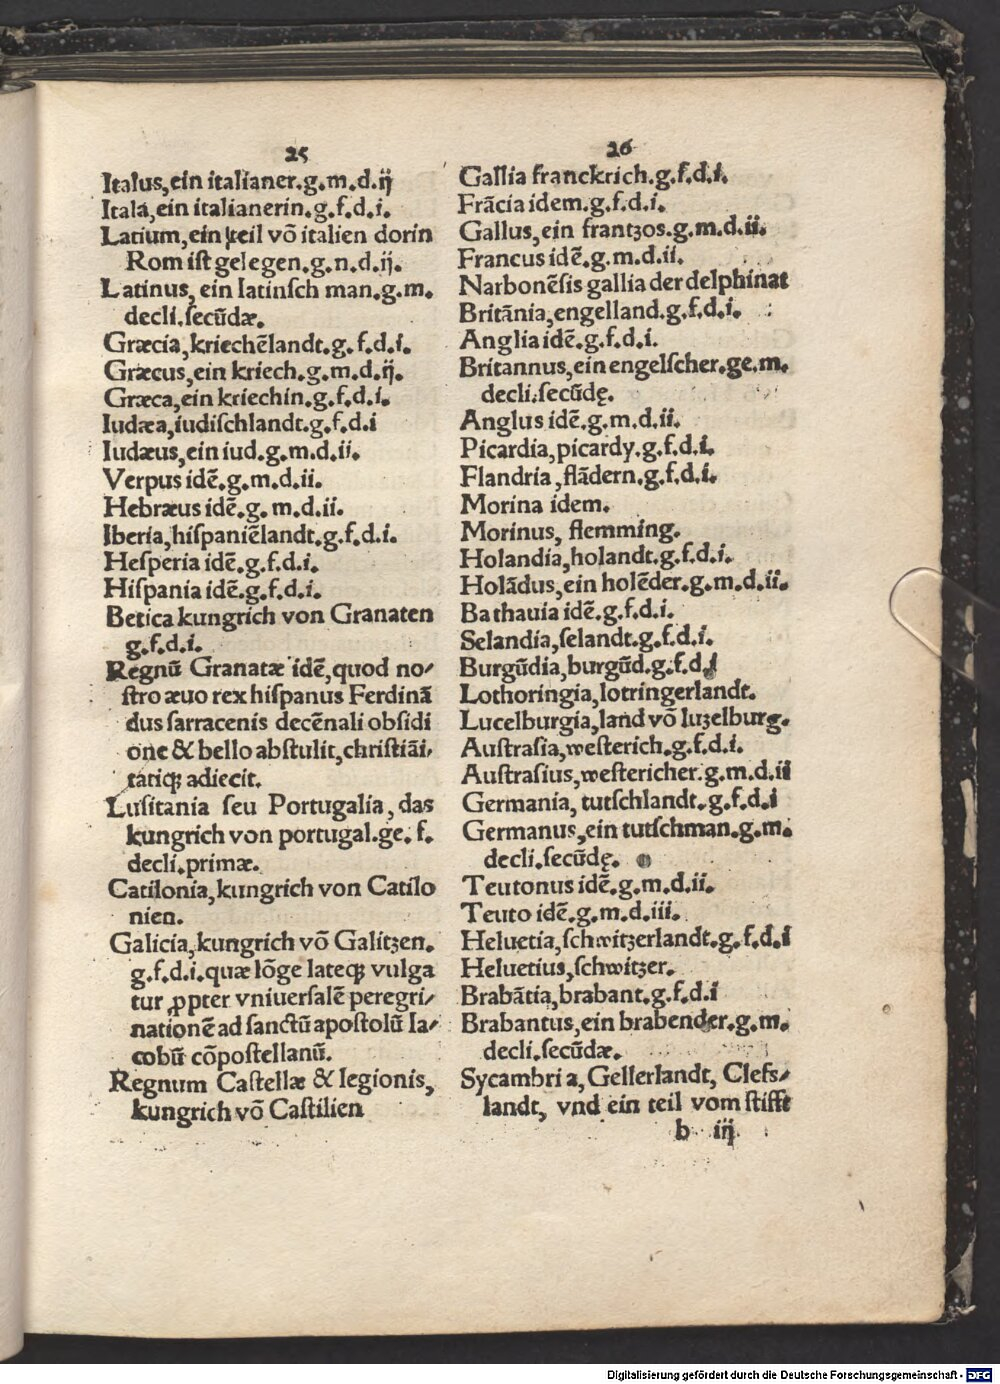 25
Italus,ein italianer.g.m.d.ij
Itala,ein italianerin.g.f.d.i.
Latium,ein teil vō italien dorin
Rom iſt gelegen.g.n.d.ij.
Latinus, ein latinſch man.g.m.
decli.ſecūdæ.
Græcia,kriechēlandt.g.f.d.i.
Græcus,ein kriech.g.m.d.ij.
Græca,ein kriechin.g.f.d.i.
Iudæa,iudiſchlandt.g.f.d.i
Iudæus,ein iud.g.m.d.ii.
Verpus idē.g.m.d.ii.
Hebræus idē.g.m.d.ii.
Iberia,hiſpaniēlandt.g.f.d.i.
Heſperia idē.g.f.d.i.
Hiſpania idē.g.f.d.i.
Betica kungrich von Granaten
g.f.d.i.
Regnū Granatæ idē,quod no/
ſtro æuo rex hiſpanus Ferdinā
dus ſarracenis decēnali obſidi
one & bello abſtulit,chriſtiāi/
tatiqꝫ adiecit.
Luſitania ſeu Portugalia, das
kungrich von portugal.ge.f.
decli.primæ.
Catilonia,kungrich von Catilo
nien.
Galicia,kungrich vō Galitzen.
g.f.d.i.quæ lōge lateqꝫ vulga
tur ꝓpter vniuerſalē peregri/
nationē ad ſanctū apoſtolū Ia/
cobū cōpoſtellanū.
Regnum Caſtellæ & legionis,
kungrich vō Caſtilien
26
Gallia franckrich.g.f.d.i.
Frācia idem.g.f.d.i.
Gallus,ein frantzos.g.m.d.ii.
Francus idē.g.m.d.ii.
Narbonēſis gallia der delphinat
Britānia,engelland.g.f.d.i.
Anglia idē.g.f.d.i.
Britannus,ein engelſcher.ge.m.
decli.ſecūdę.
Anglus idē.g.m.d.ii.
Picardia,picardy.g.f.d.i.
Flandria,flādern.g.f.d.i.
Morina idem.
Morinus, flemming.
Holandia,holandt.g.f.d.i.
Holādus,ein holēder.g.m.d.ii.
Bathauia idē.g.f.d.i.
Selandia,ſelandt.g.f.d.i.
Burgūdia,burgūd.g.f.d.i
Lothoringia,lotringerlandt.
Lucelburgia,land vō luzelburg.
Auſtraſia,weſterich.g.f.d.i.
Auſtraſius,weſtericher.g.m.d.ii
Germania, tutſchlandt.g.f.d.i
Germanus,ein tutſchman.g.m.
decli.ſecūdę.
Teutonus idē.g.m.d.ii.
Teuto idē.g.m.d.iii.
Heluetia,ſchwitzerlandt.g.f.d.i
Heluetius,ſchwitzer.
Brabātia,brabant.g.f.d.i
Brabantus,ein brabender.g.m.
decli.ſecūdæ.
Sycambria, Gellerlandt, Clefs/
landt, vnd ein teil vom ſtifft
b iij
Digitalisierung gefördert durch die Deutsche Forschungsgemeinschaft - DFG